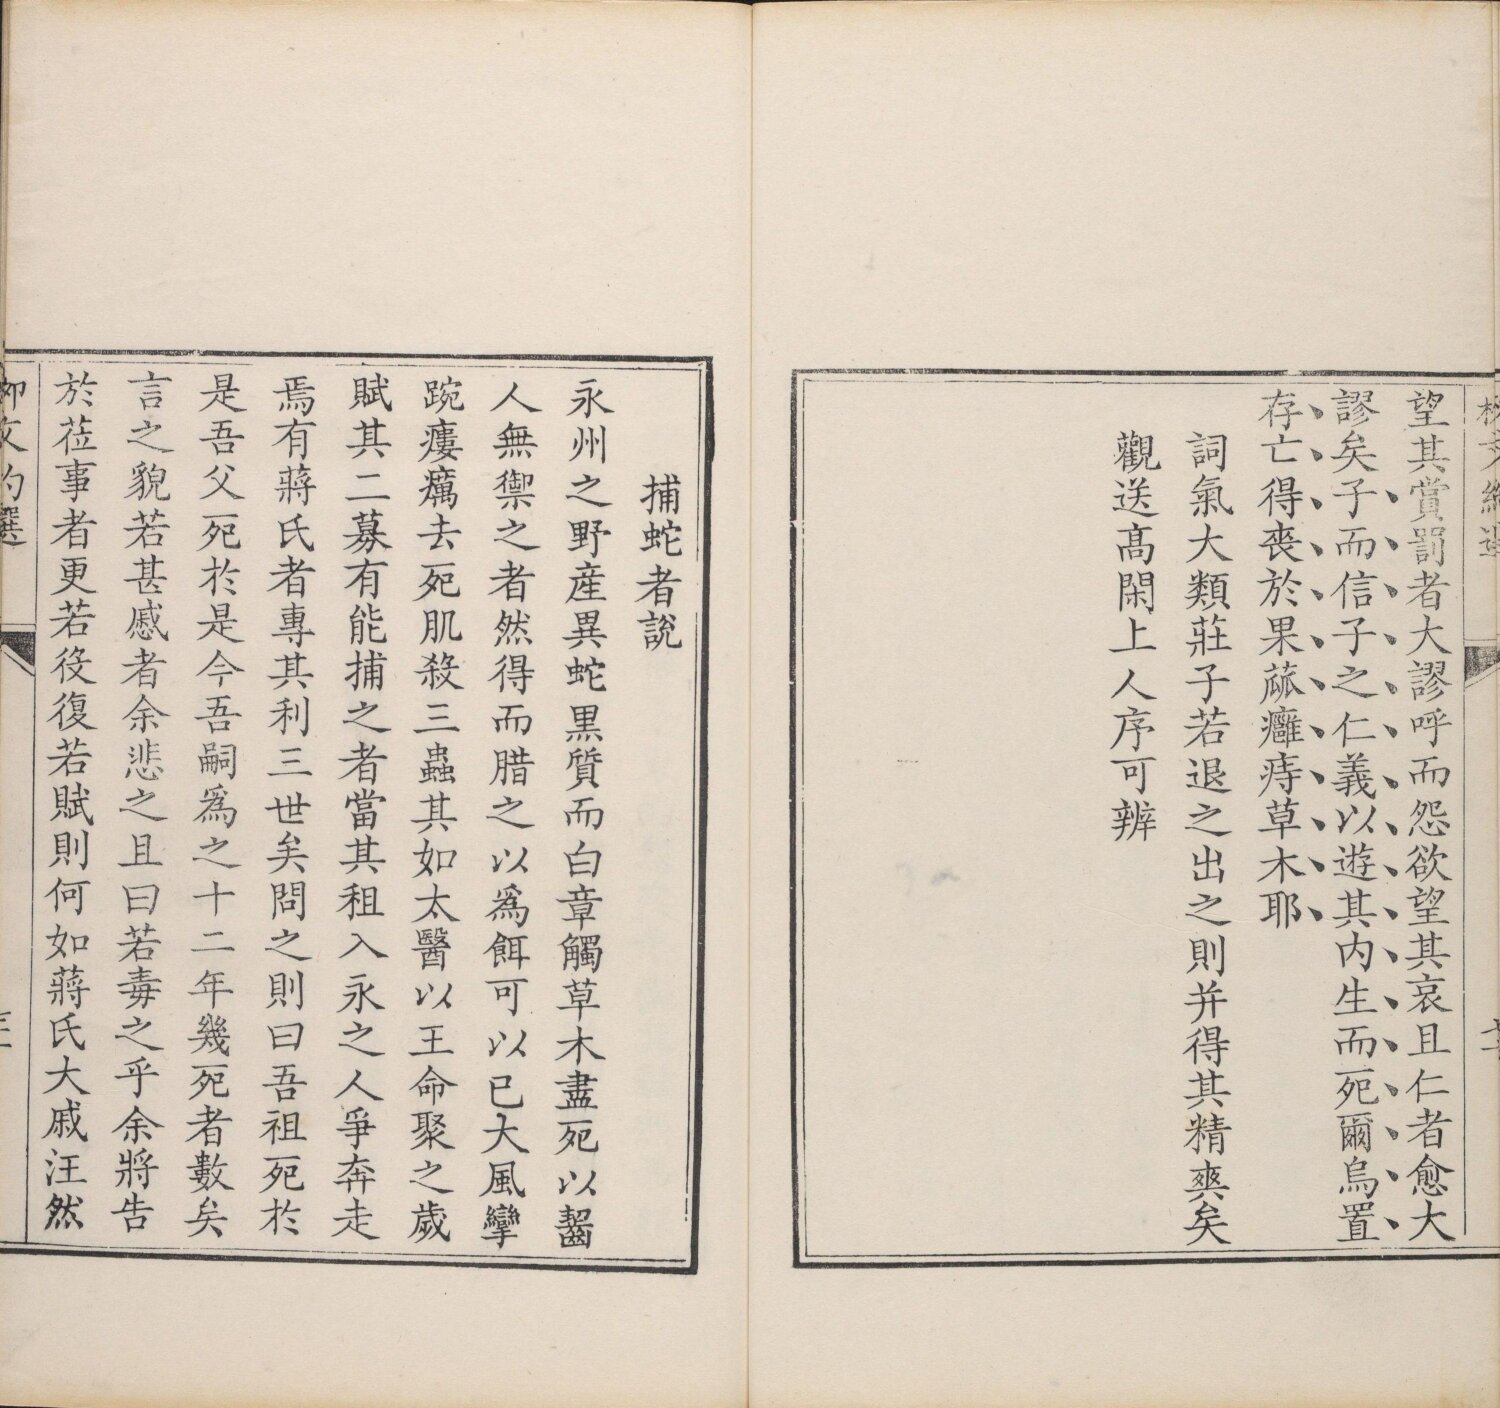 望其賞罰者大謬呼而怨欲望其哀且仁者愈大
謬矣子而信子之仁義以遊其內生而死爾烏置
存亡得喪於果蓏癰痔草木耶
詞氣大類莊子若退之出之則并得其精爽矣
觀送高閑上人序可辨
捕蛇者說
永州之野産異蛇黑質而白章觸草木盡死以齧
人無禦之者然得而腊之以爲餌可以已大風攣
踠瘻癘去死肌殺三蟲其如太醫以王命聚之歲
賦其二募有能捕之者當其租入永之人爭奔走
焉有蔣氏者專其利三世矣問之則曰吾祖死於
是吾父死於是今吾嗣爲之十二年幾死者數矣
言之貌若甚慼者余悲之且曰若毒之乎余將告
於莅事者更若役復若賦則何如蔣氏大戚汪然